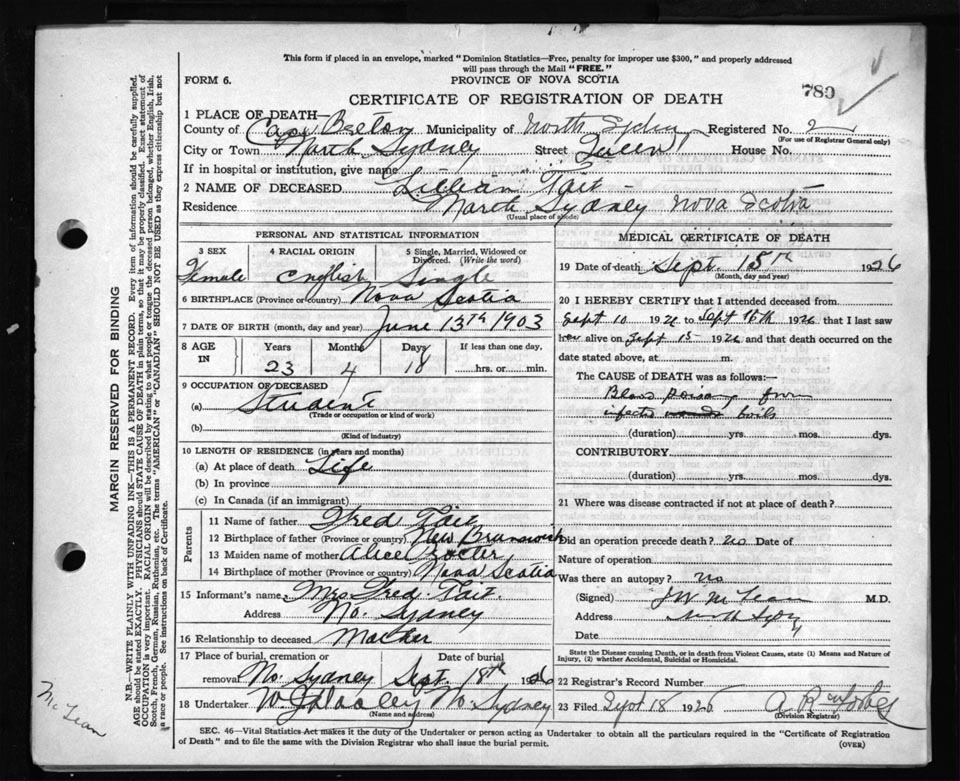 This form if placed in an envelope, marked "Dominion Statistics—Free, penalty for improper use $300," and properly addressed
will pass through the Mail "FREE."
FORM 6. PROVINCE OF NOVA SCOTIA
CERTIFICATE OF REGISTRATION OF DEATH 789
1 PLACE OF DEATH—
County of Cape Breton Municipality of North Sydney Registered No. 2
(For use of Registrar General only)
City or Town North Sydney Street Queen House No.
If in hospital or institution, give name
2 NAME OF DECEASED Lillian Tait
Residence North Sydney Nova Scotia
(Usual place of abode)
PERSONAL AND STATISTICAL INFORMATION
3 SEX 4 RACIAL ORIGIN 5 Single, Married, Widowed or Divorced. (Write the word)
Female English Single
6 BIRTHPLACE (Province or country) Nova Scotia
7 DATE OF BIRTH (month, day and year) June 13th 1903
8 AGE IN Years Months Days If less than one day.
23 4 18 hrs. or min.
9 OCCUPATION OF DECEASED
(a) Student
(Trade or occupation or kind of work)
(b)
(Kind of industry)
10 LENGTH OF RESIDENCE (in years and months)
(a) At place of death Life
(b) In province
(c) In Canada (if an immigrant)
Parents
11 Name of father Fred Tait
12 Birthplace of father (Province or country) New Brunswick
13 Maiden name of mother Alice
14 Birthplace of mother (Province or country) Nova Scotia
15 Informant's name Mrs. Fred Tait.
Address No. Sydney
16 Relationship to deceased Mother
17 Place of burial, cremation or removal Date of burial
No. Sydney Sept. 18th 1926
18 Undertaker No. Sydney
(Name and address)
MEDICAL CERTIFICATE OF DEATH
19 Date of death Sept. 15th 1926
(Month, day and year)
20 I HEREBY CERTIFY that I attended deceased from
Sept 10 1926 to Sept 15th 1926 that I last saw
her alive on Sept 15 1926 and that death occurred on the
date stated above, at m.
The CAUSE OF DEATH was as follows:—
Blood poisoning from
infected boils
(duration) yrs. mos. dys.
CONTRIBUTORY
(duration) yrs. mos. dys.
21 Where was disease contracted if not at place of death?
Did an operation precede death? no Date of
Nature of operation
Was there an autopsy? no
(Signed) J W McLean M.D.
Address North Sydney
Date
State the Disease causing Death, or in death from Violent Causes, state (1) Means and Nature of
Injury, (2) whether Accidental, Suicidal or Homicidal.
22 Registrar's Record Number
23 Filed Sept 18 1926
(Division Registrar)
SEC. 46—Vital Statistics Act makes it the duty of the Undertaker or person acting as Undertaker to obtain all the particulars required in the "Certificate of Registration
of Death" and to file the same with the Division Registrar who shall issue the burial permit. (OVER)
MARGIN RESERVED FOR BINDING
N.B.—WRITE PLAINLY WITH UNFADING INK—THIS IS A PERMANENT RECORD. Every item of information should be carefully supplied.
AGE should be stated EXACTLY. PHYSICIANS should STATE CAUSE OF DEATH in plain terms, so that it may be properly classified. Exact statement of
OCCUPATION is very important. RACIAL ORIGIN will be described by stating to what people or tongue the deceased person belonged, whether English, Irish,
Scotch, French, German, Russian, Ruthenian, etc. The terms "AMERICAN" or "CANADIAN" SHOULD NOT BE USED as they express citizenship but not
a race or people. See instructions on back of Certificate.
McLean